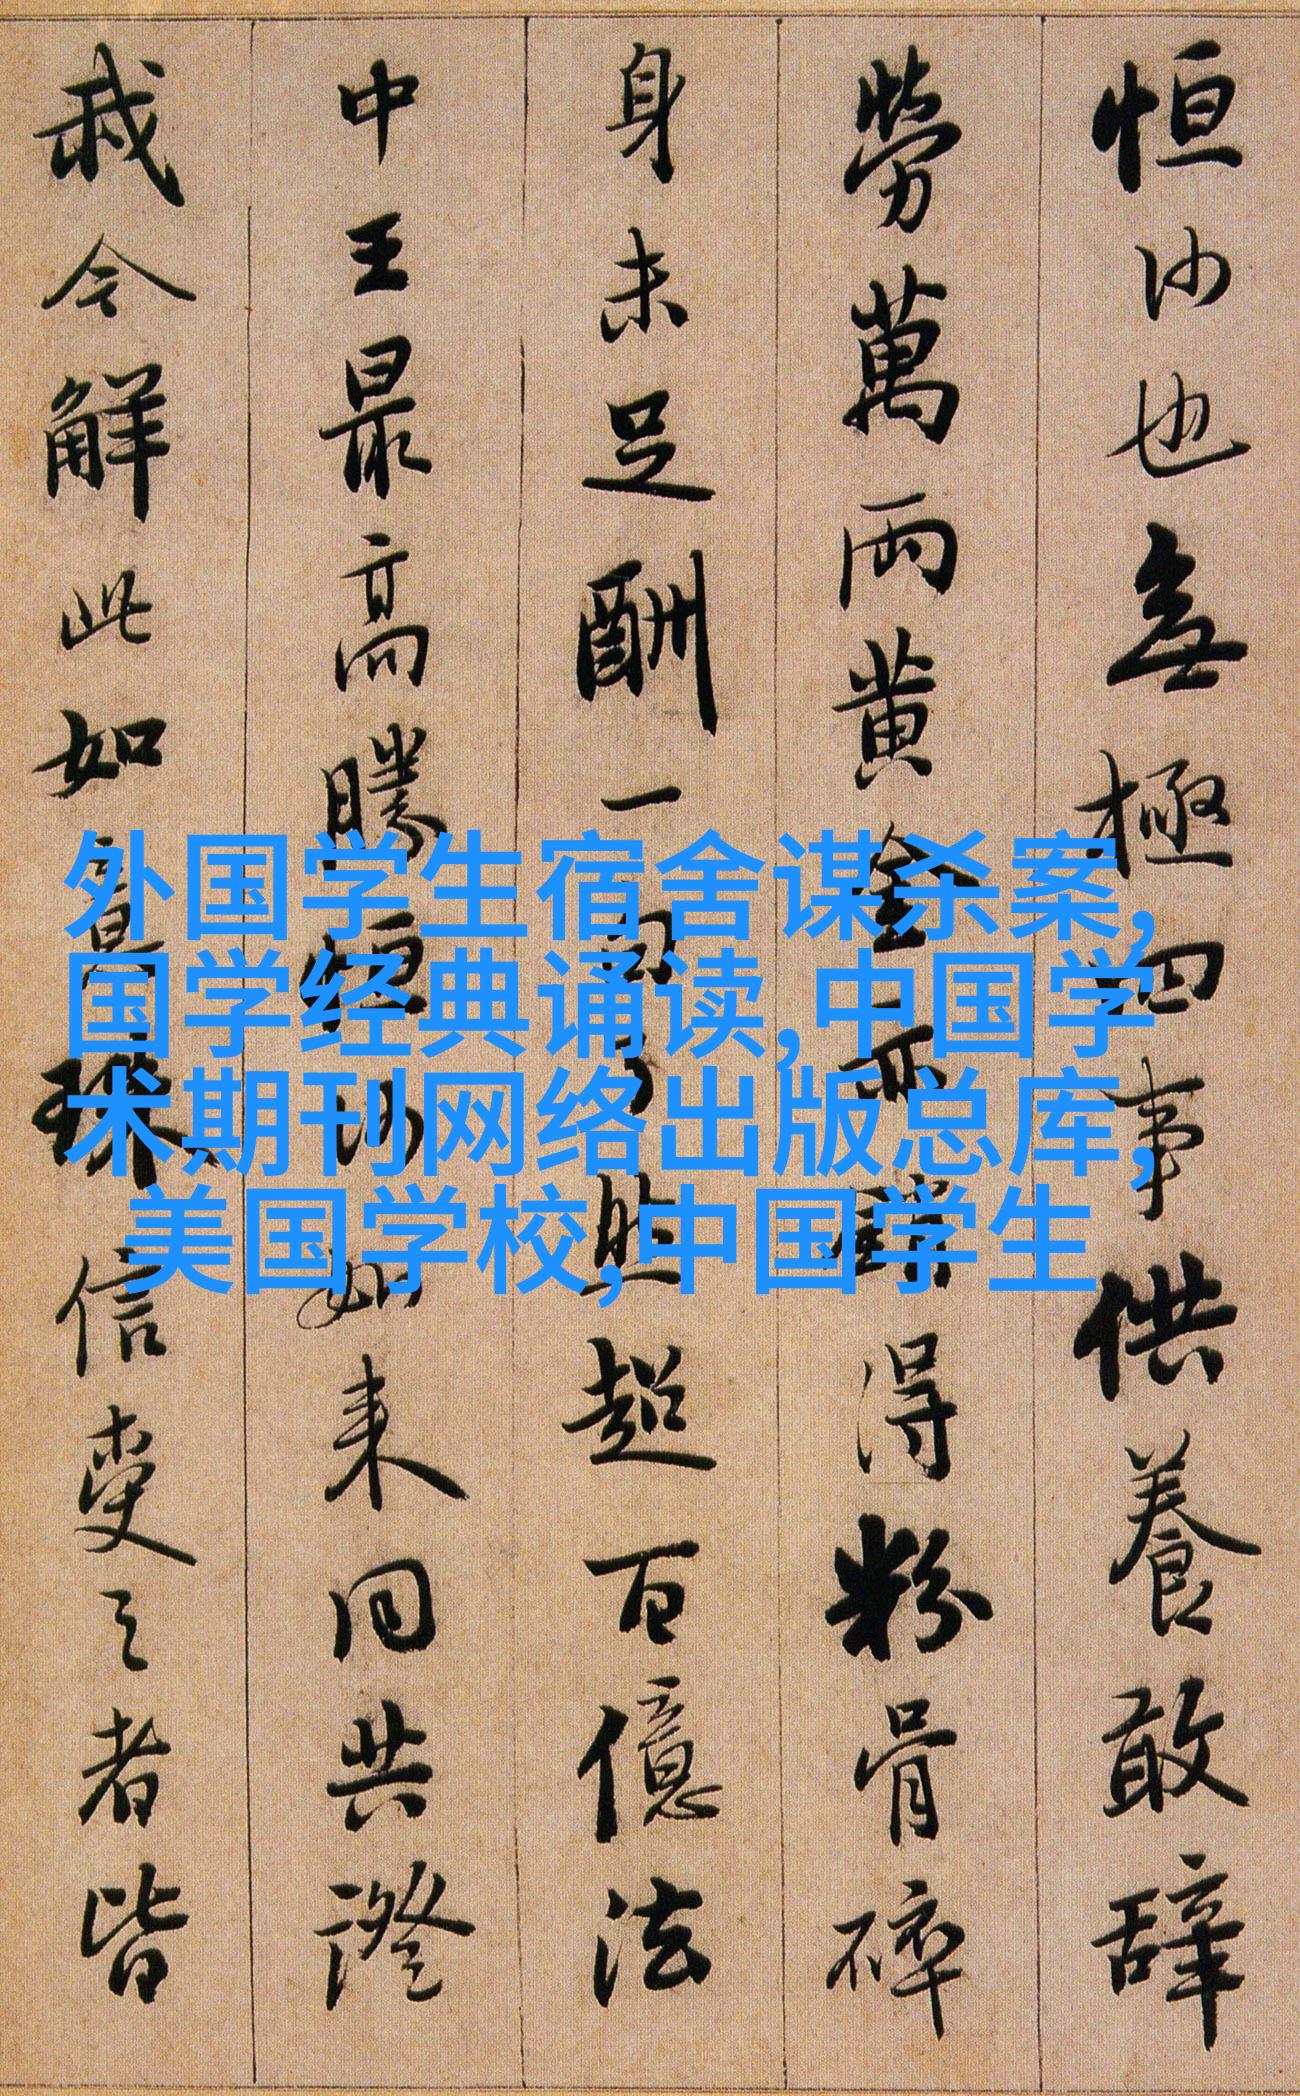 恒沙也無極四事供養敢辞
勞萬兩黃金亦銷得粉骨碎
身未足酬一句了然超百億法
中王最高勝恒沙如来同共證
我今解此如意珠信受之者皆
外国学生宿舍谋杀案,
国学经典诵读,中国学
术期刊网络出版总库,
美国学校,中国学生